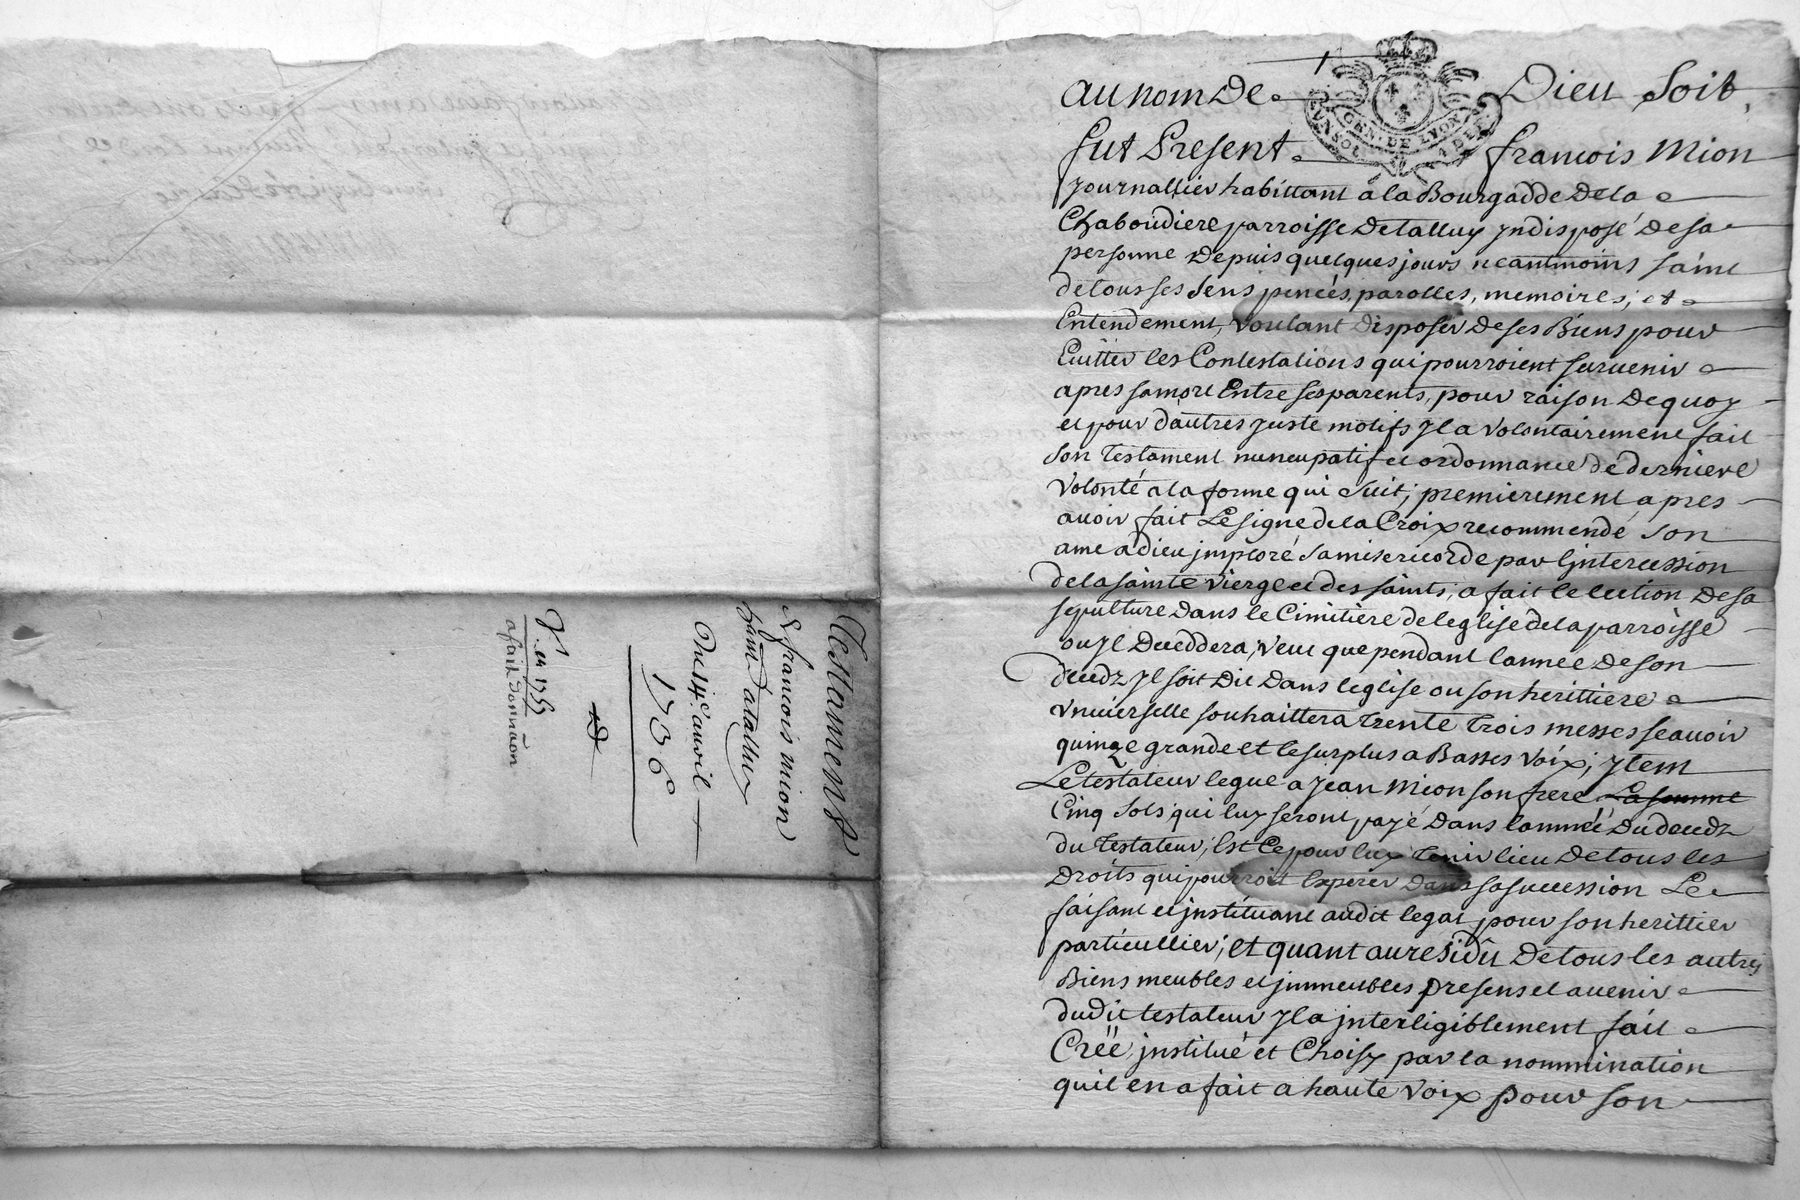 au nom De Dieu Soit
fut Present francois Mion
Journallier habittant a la Bourgadde De la
Chaboudiere parroisse De talluy Jndisposé De sa
personne Depuis quelques jours neantmoins saine
de tous ses Sens pencées, parolles, memoires, et
Entendement, voulant Disposer De ses Biens pour
Euitter les Contestations qui pourroient suruenir
apres sa mort Entre ses parents, pour raison De quoy
et pour d'autres Juste motifs Jl a volontairement fait
son testament nuncupatif et ordonnance de derniere
volonté a la forme qui suit; premierement apres
auoir fait Le signe de la Croix recommendé son
ame a dieu jmploré sa misericorde par l'jntercession
de la sainte vierge et des saints, a fait lelection De sa
sepulture Dans le Cimitiere de leglise de la parroisse
ou Jl Deceddera, veut que pendant lannee De son
decedz Jl soit Dit Dans leglise ou son herittiere
vniuerselle souhaittera trente trois messes scauoir
quinze grande et le surplus a Basses voix; Jtem
Le testateur legue a Jean Mion son frere La somme
Cinq sols qui luy seront payé Dans lannéé Du decedz
du testateur, Est Ce pour luy tenir lieu De tous les
Droits qui pourroit Esperer Dans sa succession Le
faisant et jnstituant audit legat pour son herittier
particullier; et quant au residû De tous les autres
Biens meubles et jmmeubles presens et auenir
dudit testateur Jl a jnterligiblement fait
Créé, jnstitué et Choisy par la nommination
quil en a fait a haute voix pour son
Testament
francois mion
Du 14e auril
1736